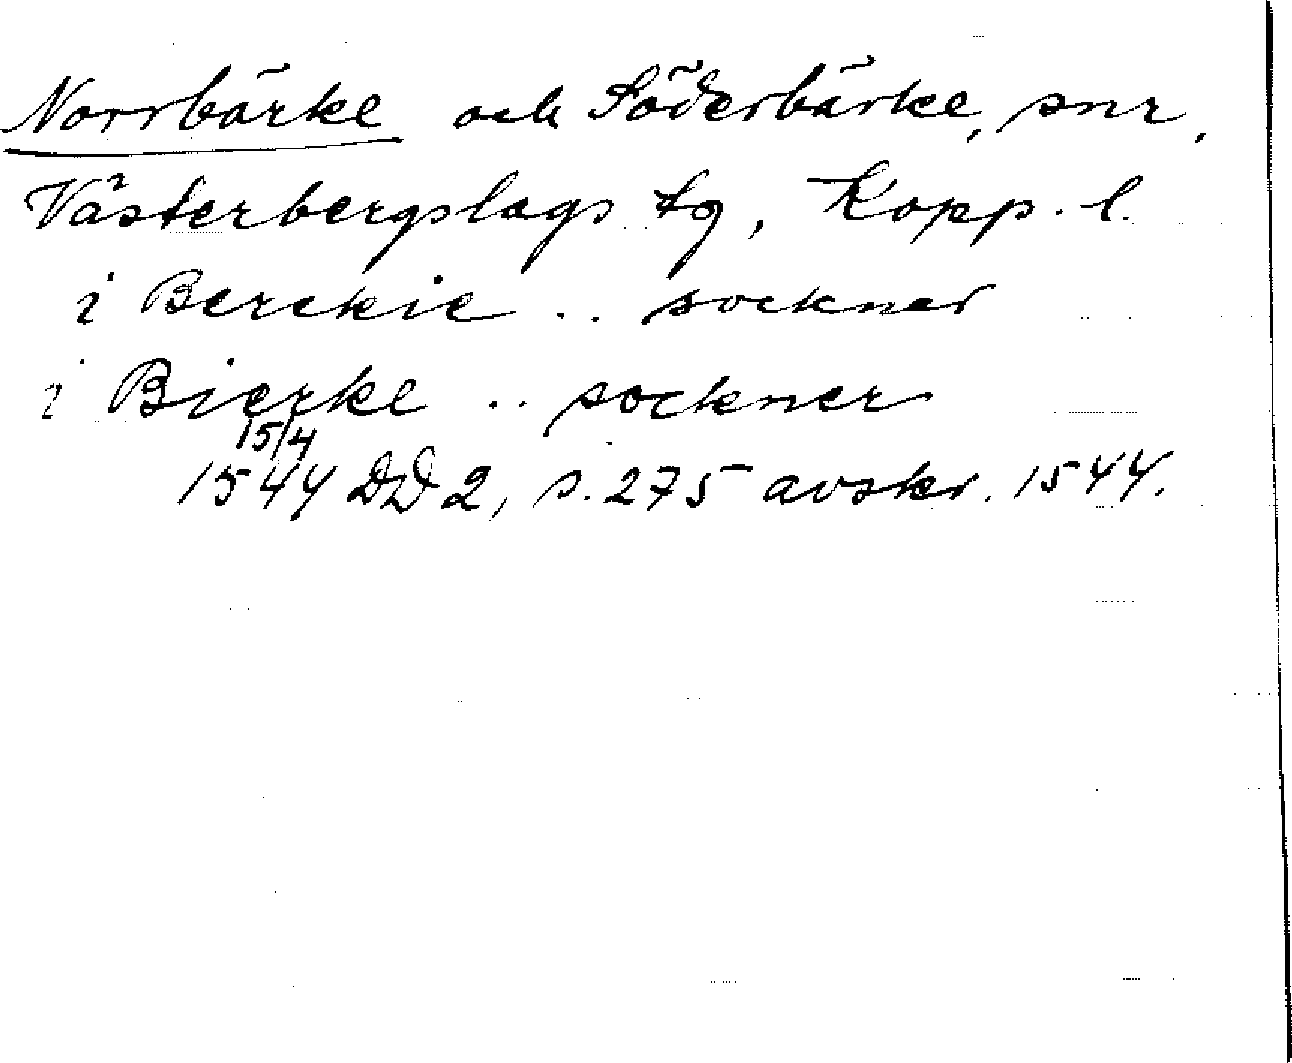 Norrbärke och Söderbärke, snr,
Västerbergslags tg, Kopp. l.
i Berckie .. sockner
i Bierke .. sockner
15/4
1544 DD 2, s. 275 avskr. 1544.